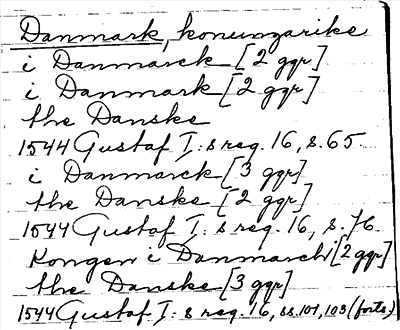 Danmark, konungarike
i Danmarck [2 ggr]
i Danmark [2 ggr]
the Danske
1544 Gustaf I: s reg. 16, s. 65.
i Danmarck [3 ggr]
the Danske [2 ggr]
1544 Gustaf I: s reg. 16, s. 76.
Kongen i Danmarch [2 ggr]
the Danske [3 ggr]
1544 Gustaf I: s reg. 16, ss. 101, 103 (forts.)